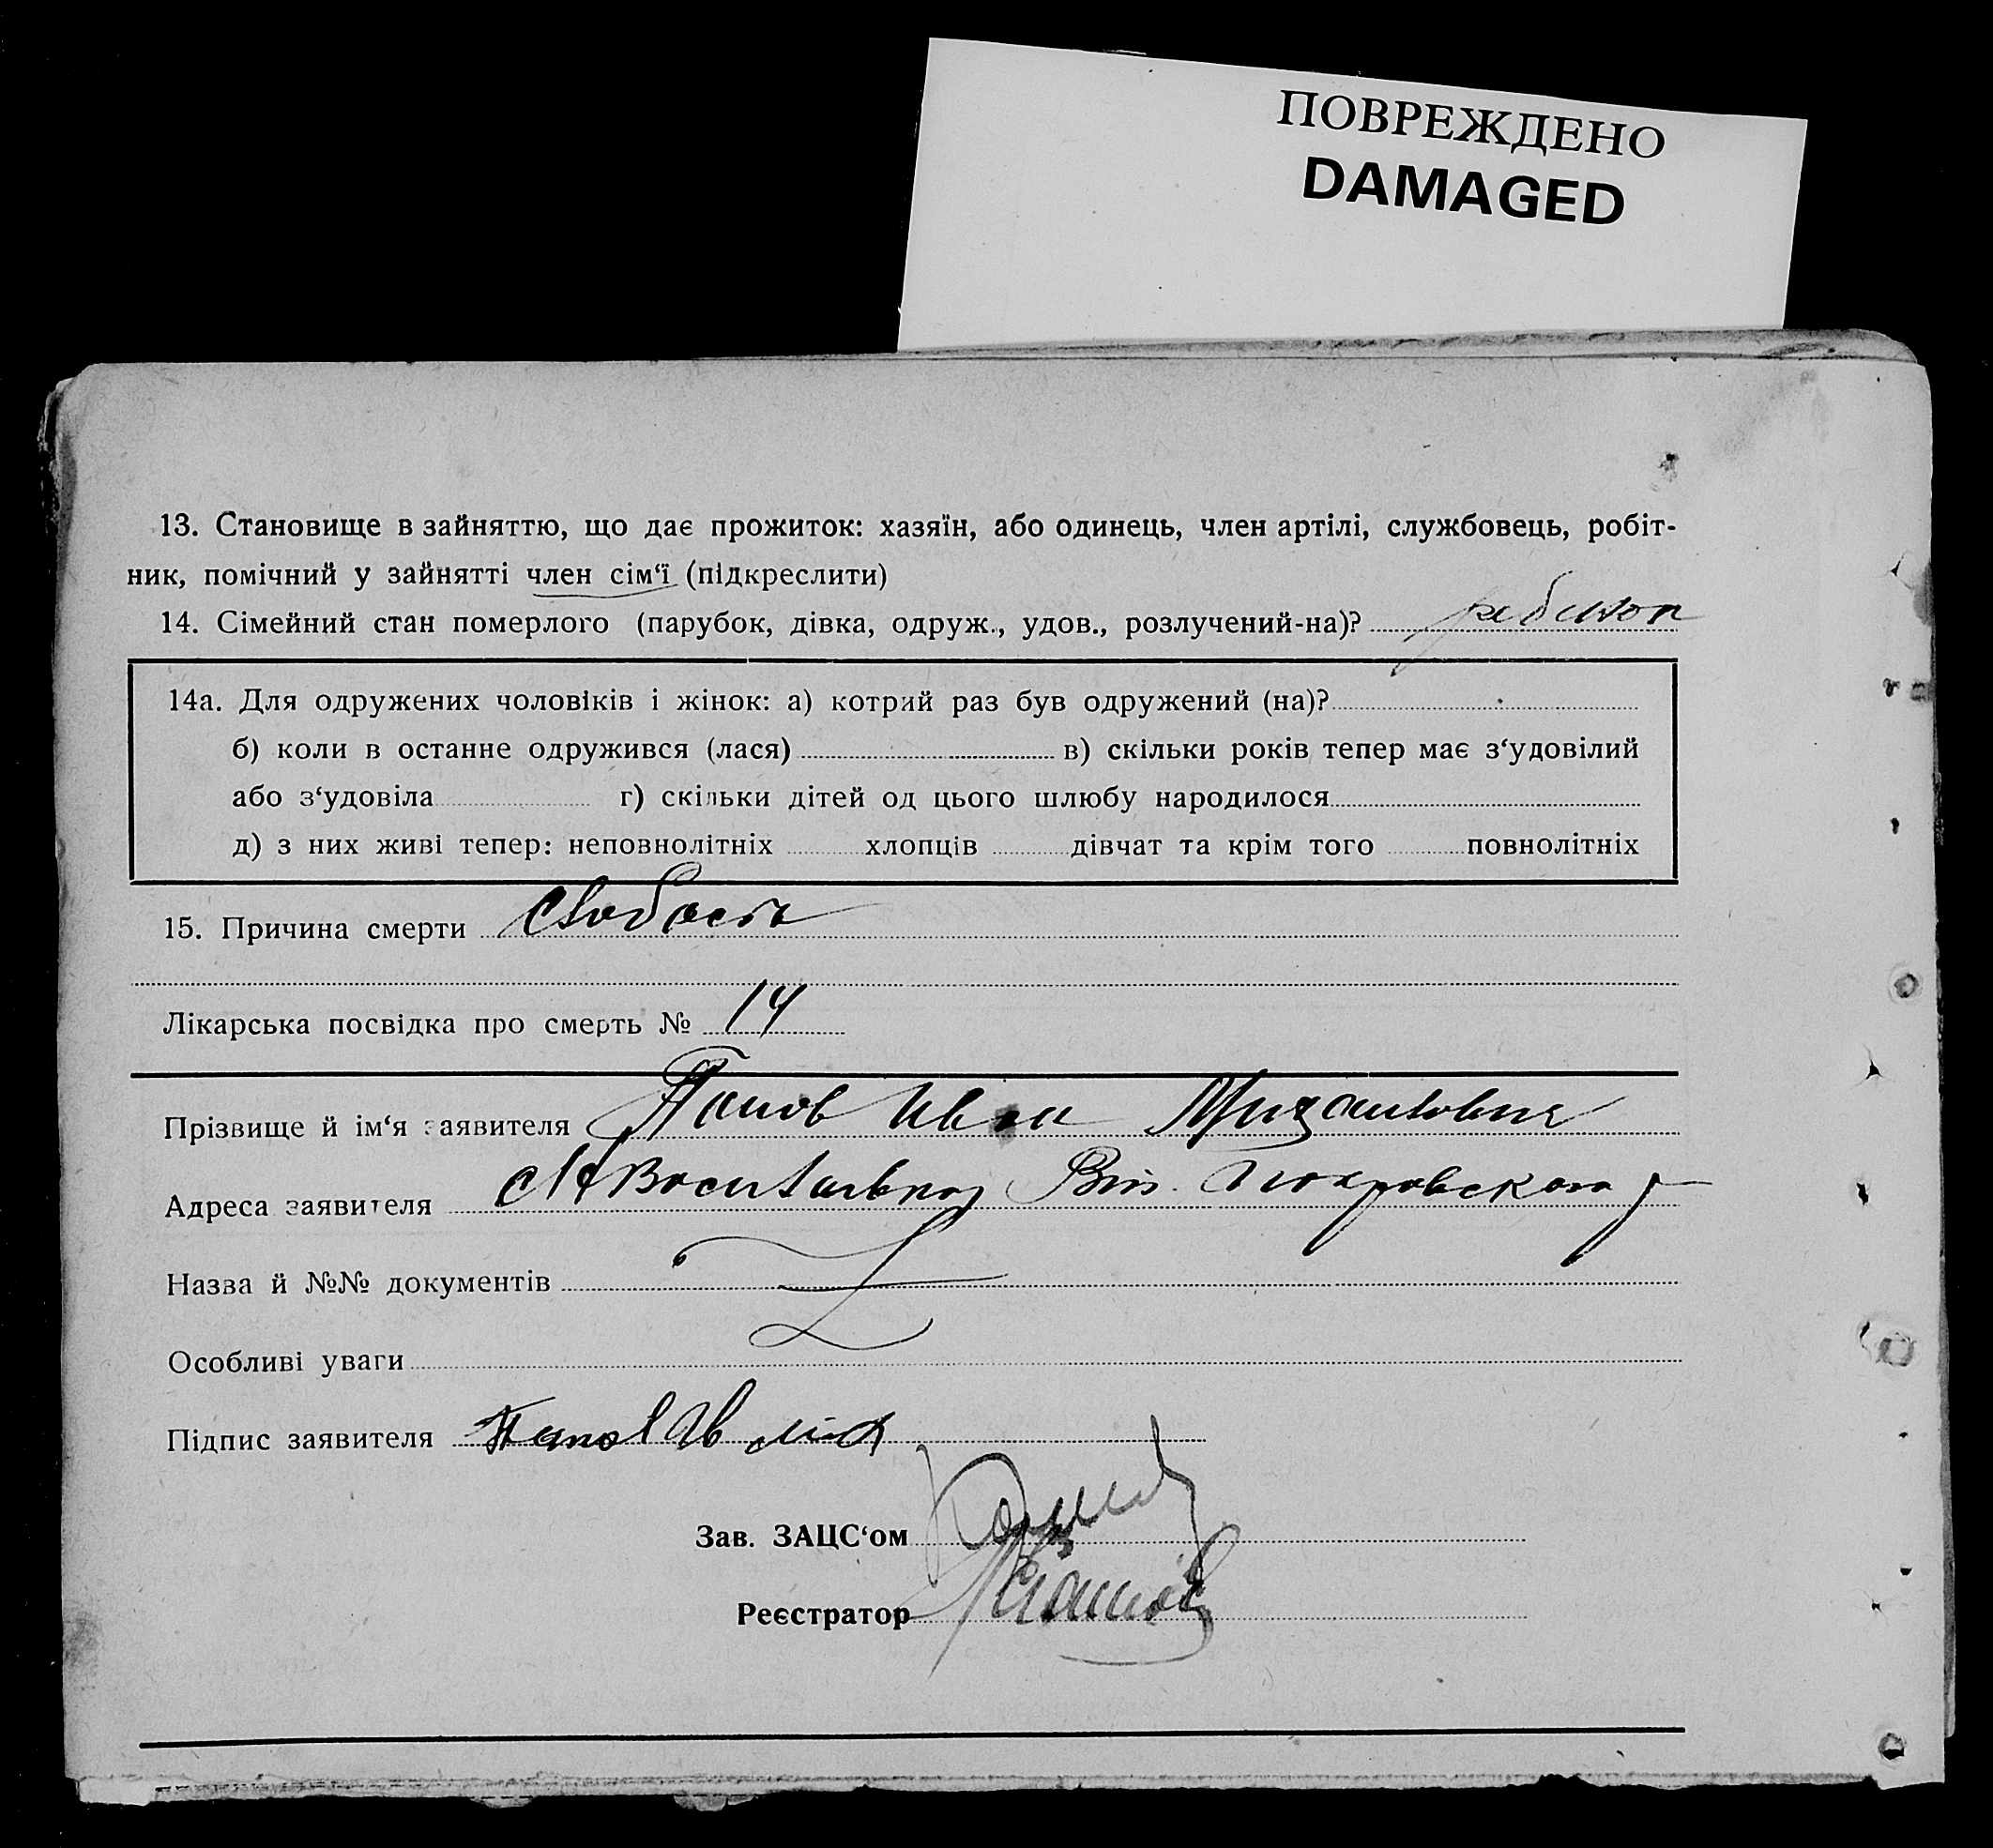 ПОВРЕЖДЕНО
DAMAGED
13. Становище в зайняттю, що дає прожиток: хазяїн, або одинець, член артілі, службовець, робіт-
ник, помічний у зайнятті член сім‘ї (підкреслити)
14. Сімейний стан померлого (парубок, дівка, одруж., удов., розлучений-на)? ребенок
14а. Для одружених чоловіків і жінок: а) котрий раз був одружений (на)?
б) коли в останне одружився (лася) в) скільки років тепер має з‘удовілий
або з‘удовіла г) скільки дітей од цього шлюбу народилося
д) з них живі тепер: неповнолітніх хлопців дівчат та крім того повнолітніх
15. Причина смерти слабость
Лікарська посвідка про смерть № 14
Прізвище й ім‘я заявителя Панов Иван
Адреса заявителя Покровского
Назва й №№ документів
Особливі уваги
Підпис заявителя Панов Ив
Зав. ЗАЦС‘ом
Реєстратор